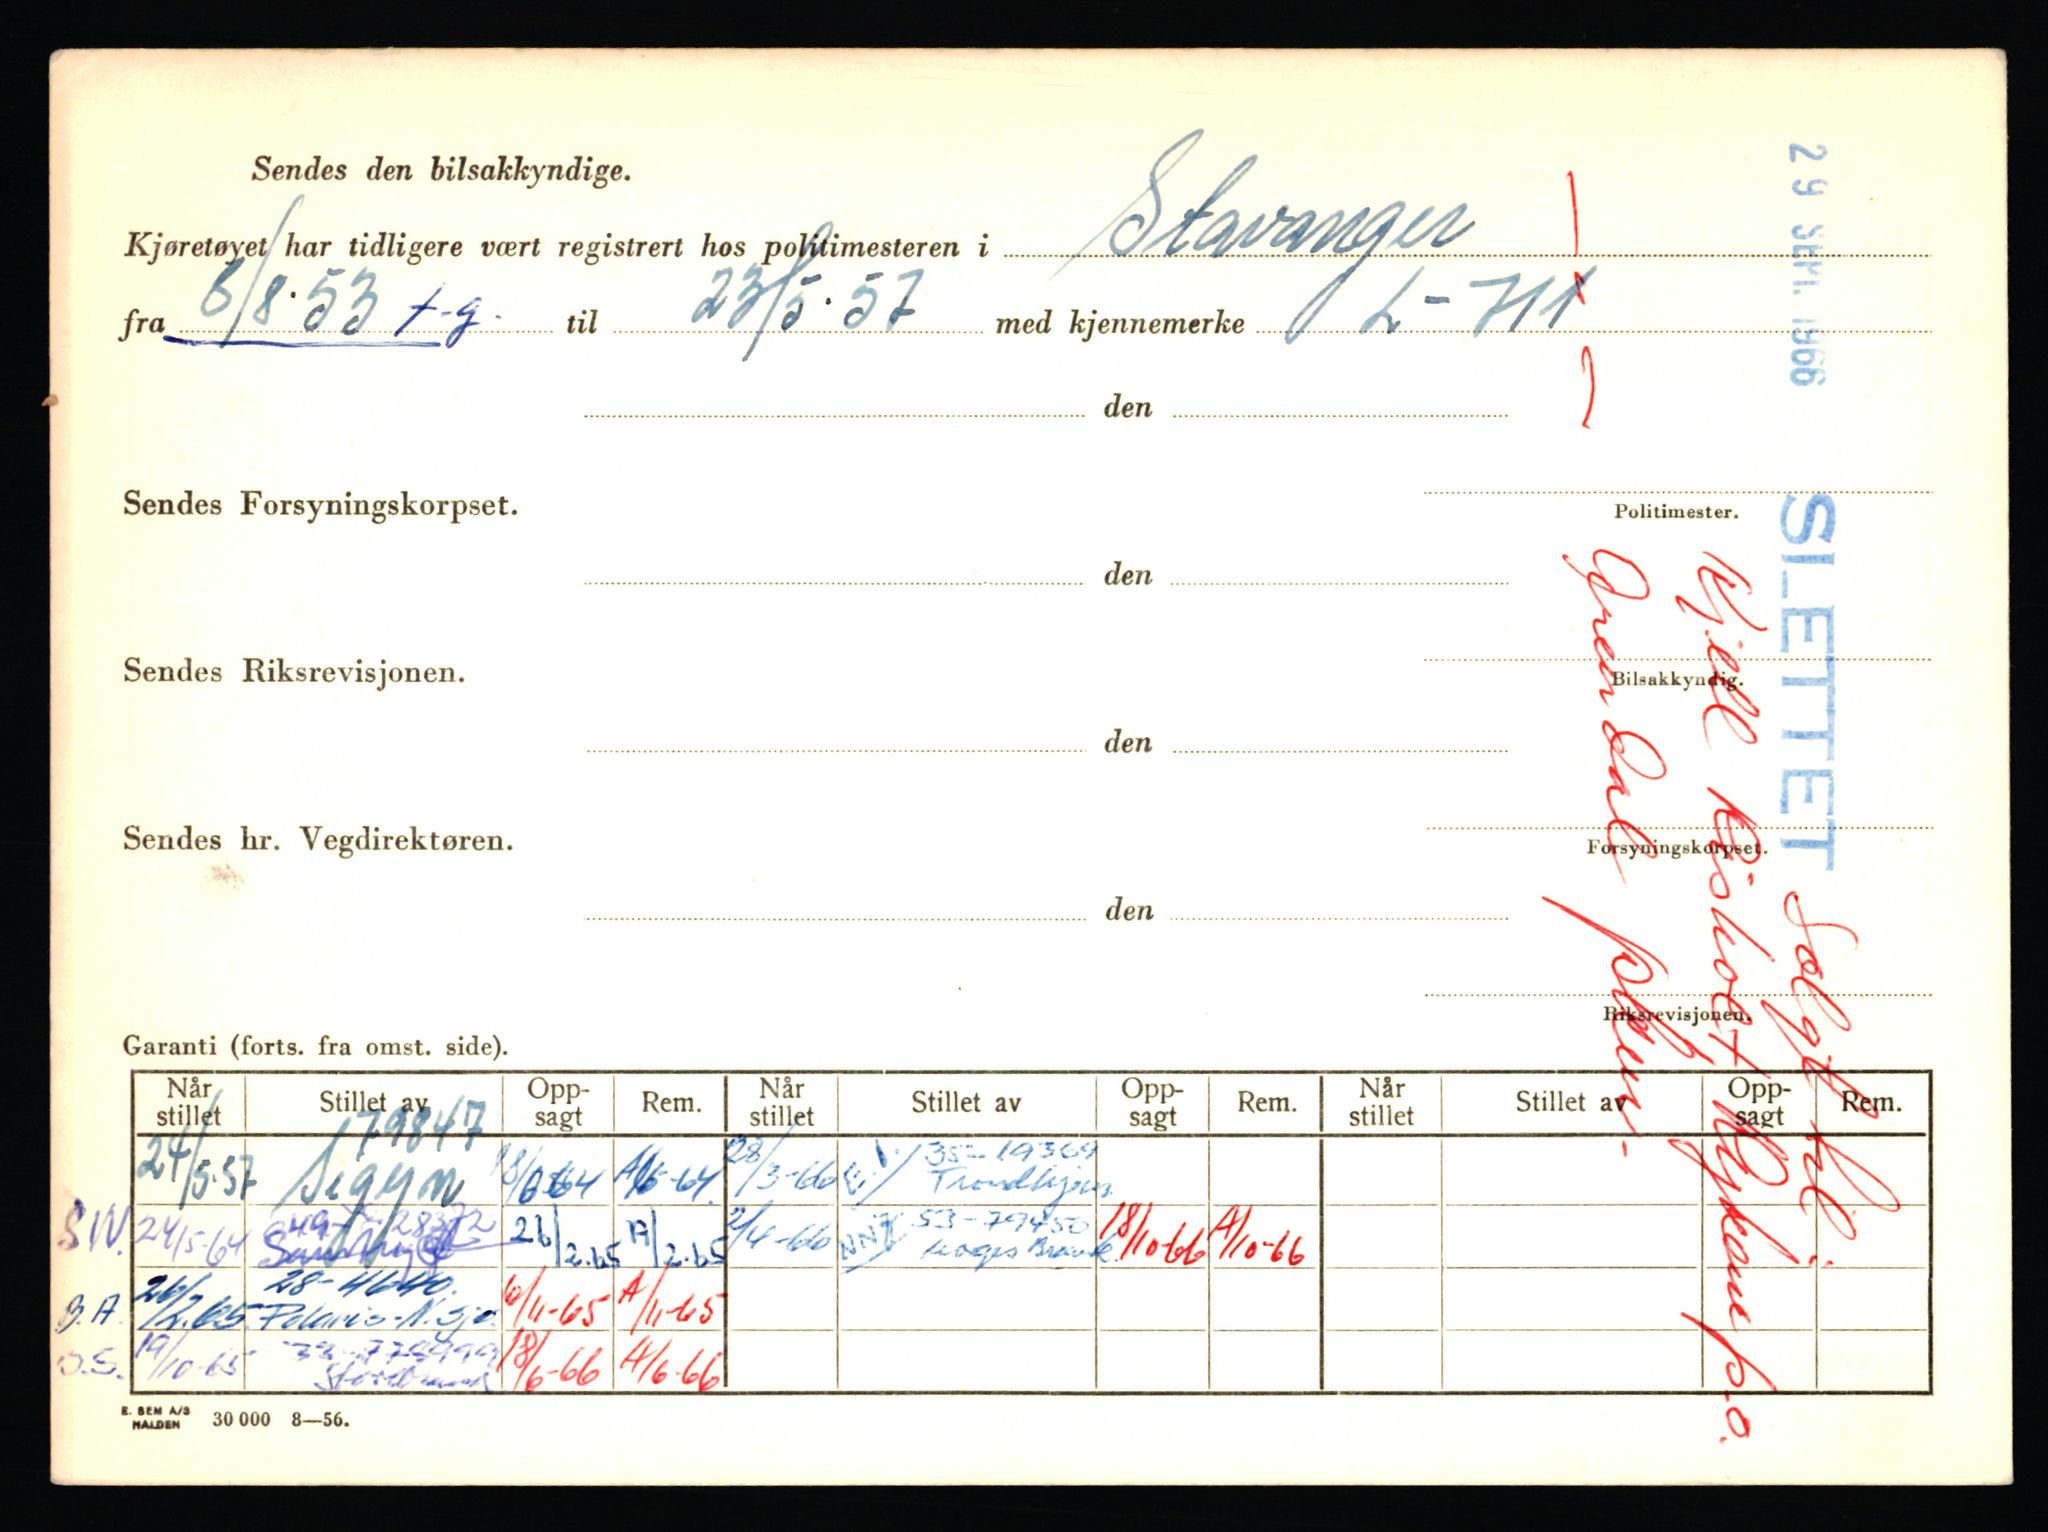 Sendes den bilsakkyndige.
Kjøretøyet har tidligere vært registrert hos politimesteren i Stavanger
fra 6/8.53 t-g. til 23/5.57 med kjennemerke L-711
den
Sendes Forsyningskorpset.
Politimester.
den
Sendes Riksrevisjonen.
Bilsakkyndig.
den
Sendes hr. Vegdirektøren.
Forsyningskorpset.
den
Riksrevisjonen.
29 SEPT. 1966
SLETTET Solgt til
Kjell Rykene p.o.
Grendal
Garanti (forts. fra omst. side).
Når stillet Stillet av Opp-sagt Rem. Når stillet Stillet av Opp-sagt Rem. Når stillet Stillet av Opp-sagt Rem.
24/5.57 79847 Sigyn 18/6-64 A/6-64. 28/3-66 E.I. 35-19369 Trondhjems
S.W. 24/5-64 49-28372 26/2.65 19/2.65 2/4-66 NNI 53-79450 Norges Brannk. 18/10-66 A/10-66
B.A. 26/2.65. 28-4640. Polaris-N.Sjø. 10/11-65 A/11-65
O.S. 19/10-65 33-773999 Storebrand 18/6-66 A/6-66
E. SEM A/S HALDEN 30 000 8—56.